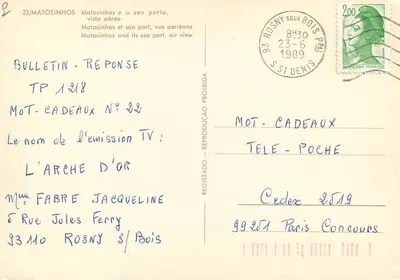 22/MATOSINHOS
Matosinhos e o seu porto,
vista aérea
Matosinhos et son port, vue aérienne
Matosinhos and its sea port, air view
BULLETIN - REPONSE
TP 1218
MOT-CADEAUX N° 22
Le nom de l'emission TV:
L'ARCHE D'OR
Mme FABRE JACQUELINE
6 Rue Jules Ferry
93110 ROSNY S/Bois
REGISTADO - REPRODUÇÃO PROIBIDA
93 ROSNY SOUS BOIS PPAL
8H30
23-6
1989
S. ST DENIS
2,00
MOT-CADEAUX
TELE-POCHE
Cedex 2519
99251 Paris Concours